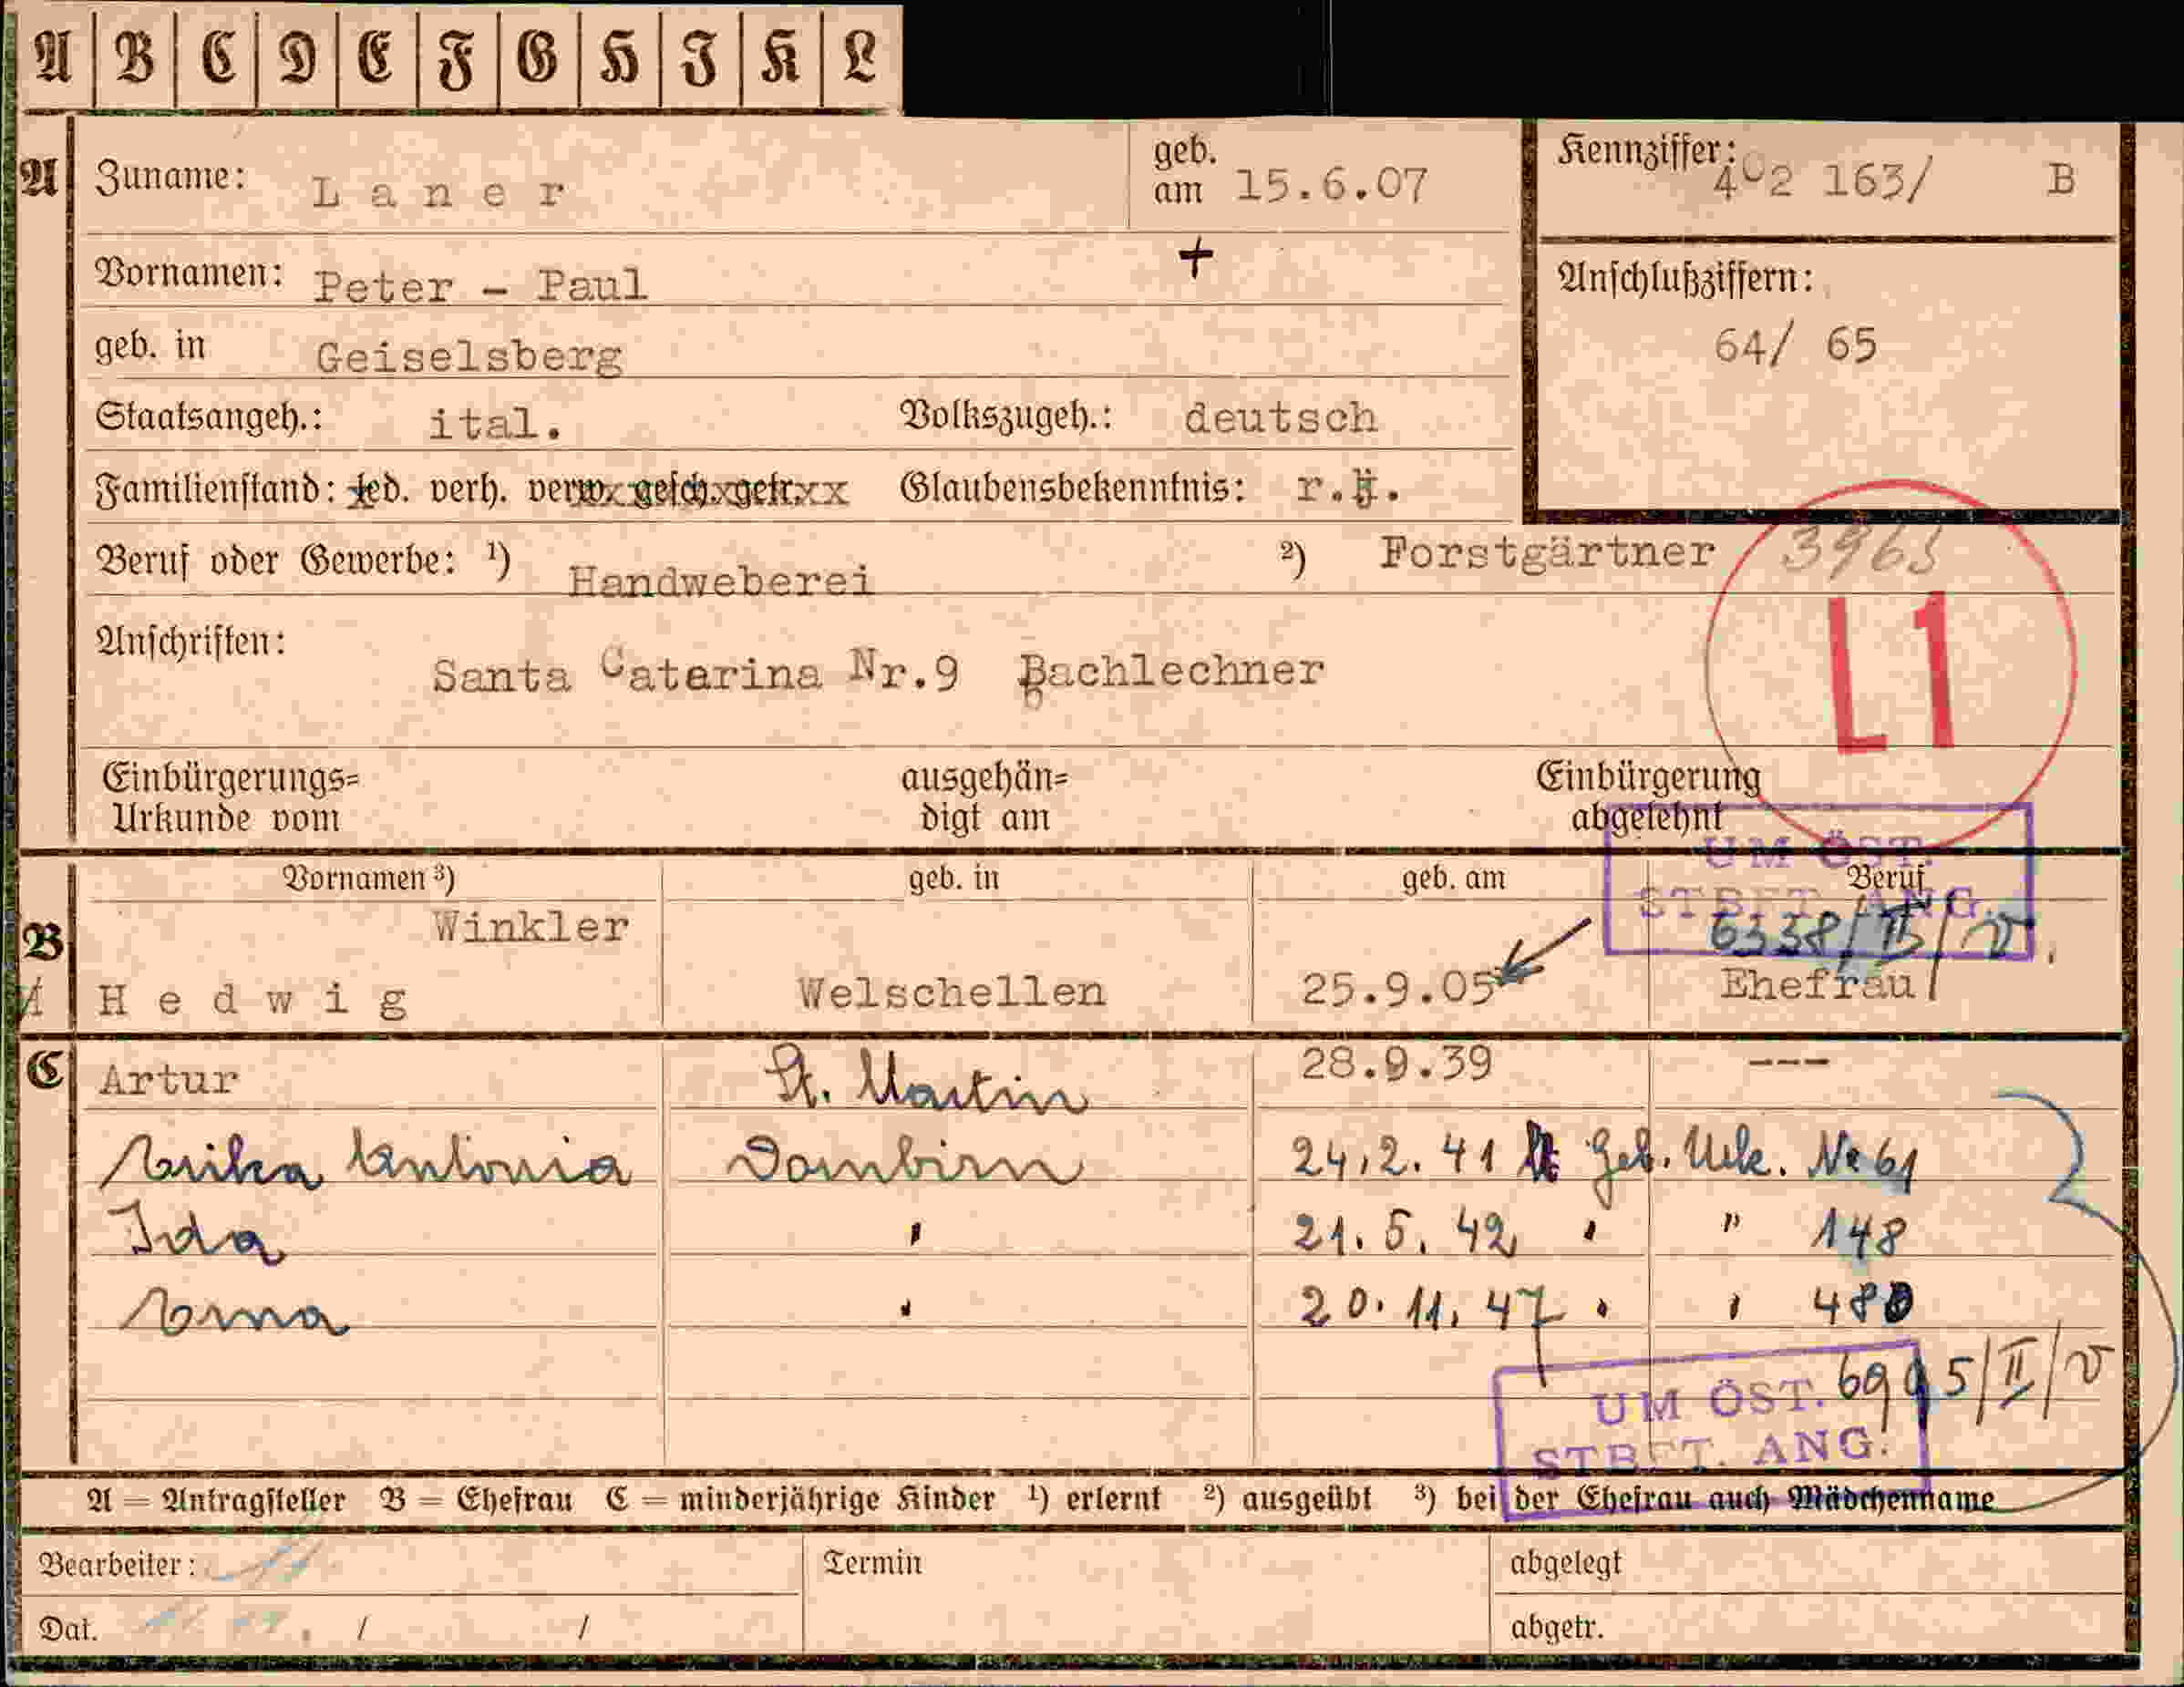 A B C D E F G H I K L
A Zuname: Laner geb. am 15.6.07
Kennziffer: 402 163/ B
Vornamen: Peter - Paul +
Anschlußziffern:
64/ 65
geb. in Geiselsberg
Staatsangeh.: ital. Volkszugeh.: deutsch
Familienstand: led. verh. verw. gesch. getr. xx Glaubensbekenntnis: r.k.
Beruf oder Gewerbe: ¹) Handweberei ²) Forstgärtner 3963
L1
Anschriften:
Santa Catarina Nr.9 Bachlechner
Einbürgerungs=
Urkunde vom
ausgehän=
digt am
Einbürgerung
abgelehnt
UM ÖST.
STBFT. ANG.
6338/II/V
B Vornamen ³) geb. in geb. am Beruf
Winkler
Hedwig Welschellen 25.9.05 Ehefrau
C Artur St. Martin 28.9.39 ---
Erika Antonia Dornbirn 24.2.41 Geb. Urk. Nr 61
Ida " 21.5.42 " " 148
Erna " 20.11.47 " " 480
6995/II/V
UM ÖST.
STBFT. ANG.
A = Antragsteller B = Ehefrau C = minderjährige Kinder ¹) erlernt ²) ausgeübt ³) bei der Ehefrau auch Mädchenname
Bearbeiter: Termin abgelegt
Dat. / / abgetr.